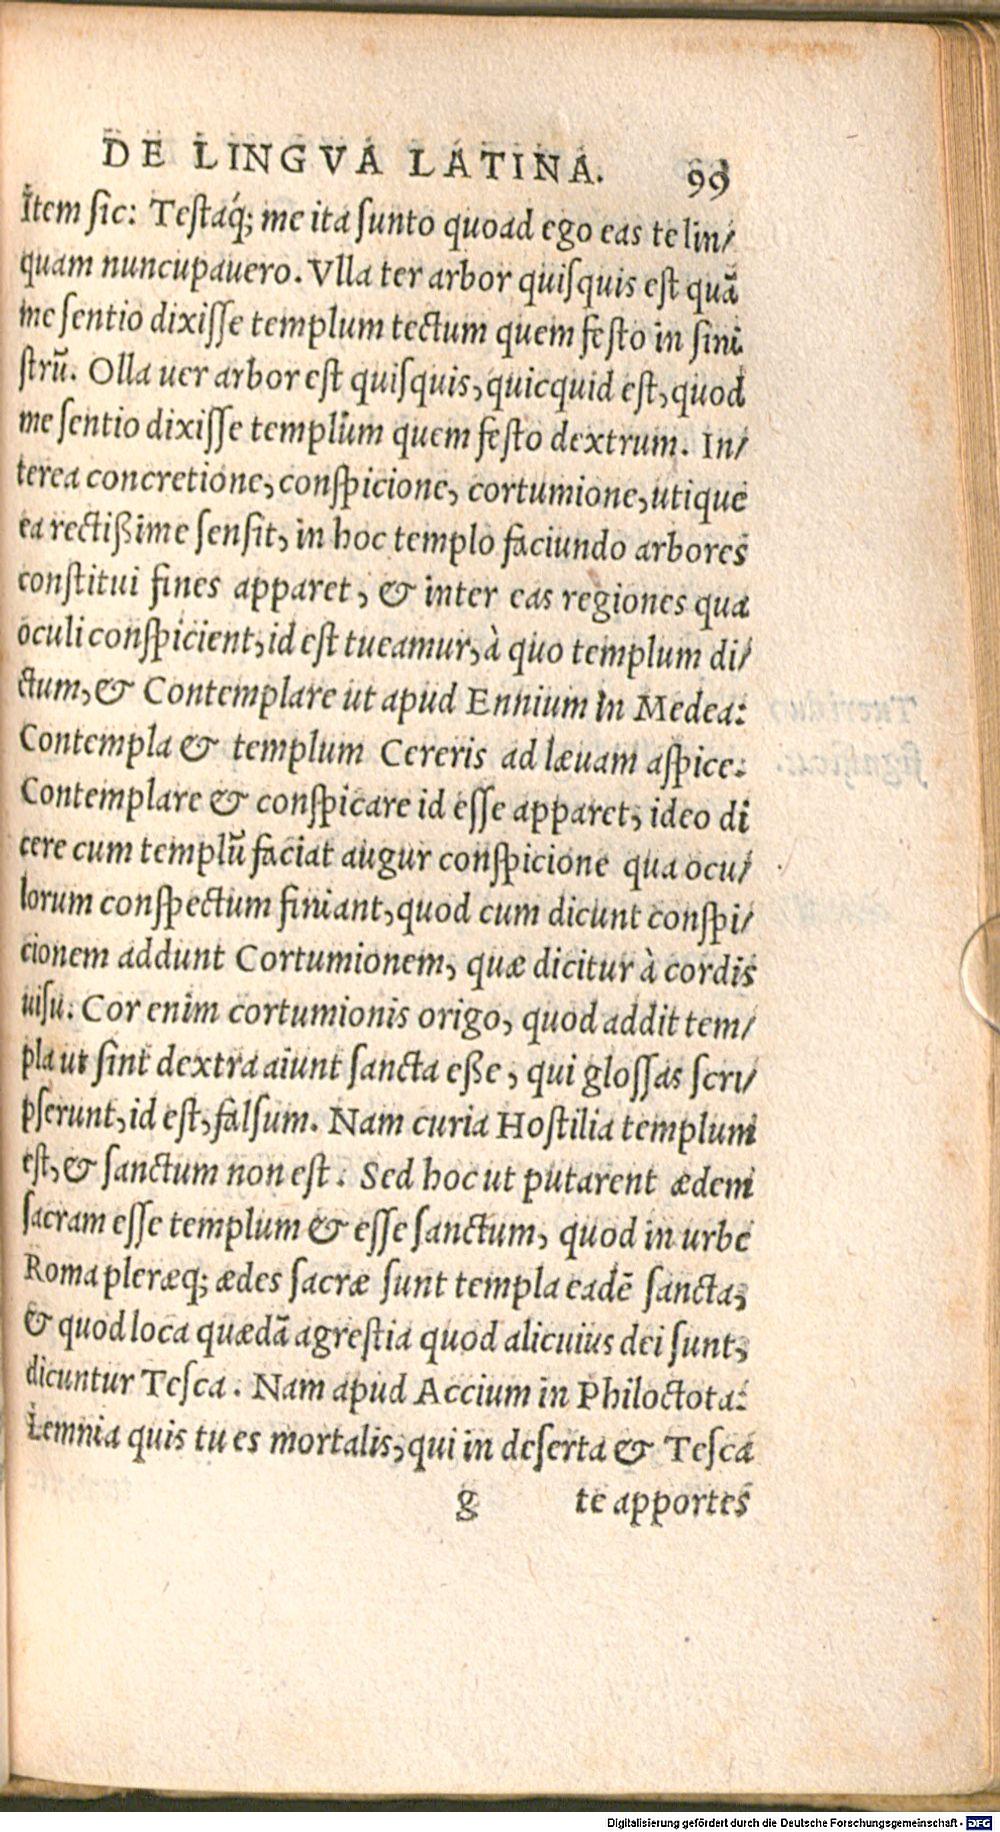 DE LINGVA LATINA. 99
Item sic: Testaq́; me ita sunto quoad ego eas te lin/
quam nuncupauero. Vlla ter arbor quisquis est quā
me sentio dixisse templum tectum quem festo in sini
strū. Olla uer arbor est quisquis, quicquid est, quod
me sentio dixisse templum quem festo dextrum. In/
terea concretione, conspicione, cortumione, utique
ea rectißime sensit, in hoc templo faciundo arbores
constitui fines apparet, & inter eas regiones qua
oculi conspicient, id est tueamur, à quo templum di/
ctum, & Contemplare ut apud Ennium in Medea:
Contempla & templum Cereris ad læuam aspice.
Contemplare & conspicare id esse apparet, ideo di
cere cum templū faciat augur conspicione qua ocu/
lorum conspectum finiant, quod cum dicunt conspi/
cionem addunt Cortumionem, quæ dicitur à cordis
uisu. Cor enim cortumionis origo, quod addit tem/
pla ut sint dextra aiunt sancta eße, qui glossas scri/
pserunt, id est, falsum. Nam curia Hostilia templum
est, & sanctum non est. Sed hoc ut putarent ædem
sacram esse templum & esse sanctum, quod in urbe
Roma pleræq; ædes sacræ sunt templa eadē sancta,
& quod loca quædā agrestia quod alicuius dei sunt,
dicuntur Tesca. Nam apud Accium in Philoctota:
Lemnia quis tu es mortalis, qui in deserta & Tesca
g te apportes
Digitalisierung gefördert durch die Deutsche Forschungsgemeinschaft - DFG